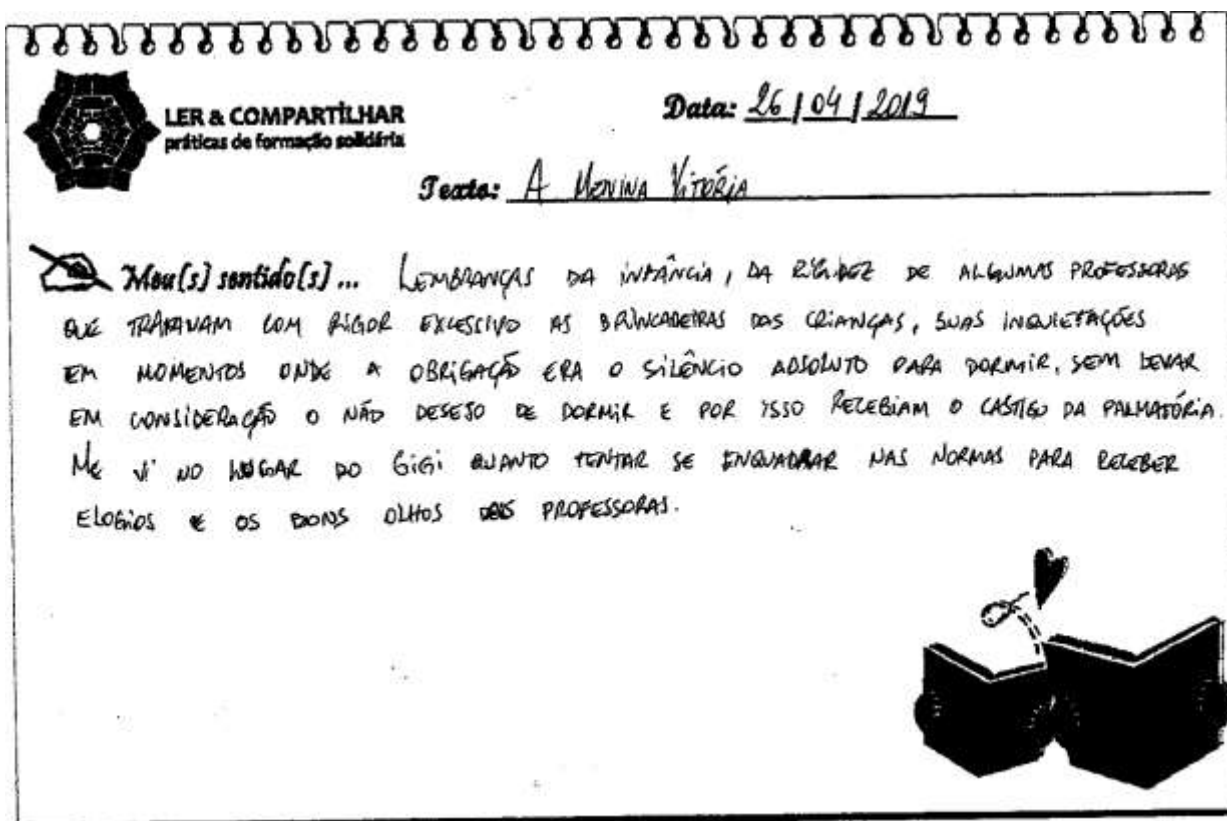 LER & COMPARTILHAR
práticas de formação solidária
Data: 26 / 04 / 2019
Texto: A Menina Vitória
Meu(s) sentido(s)... LEMBRANÇAS DA INFÂNCIA, DA RIGIDEZ DE ALGUMAS PROFESSORAS
QUE TRATAVAM COM RIGOR EXCESSIVO AS BRINCADEIRAS DAS CRIANÇAS, SUAS INQUIETAÇÕES
EM MOMENTOS ONDE A OBRIGAÇÃO ERA O SILÊNCIO ABSOLUTO PARA DORMIR, SEM LEVAR
EM CONSIDERAÇÃO O NÃO DESEJO DE DORMIR E POR ISSO RECEBIAM O CASTIGO DA PALMATÓRIA.
ME VI NO LUGAR DO GIGI QUANTO TENTAR SE ENQUADRAR NAS NORMAS PARA RECEBER
ELOGIOS E OS BONS OLHOS DAS PROFESSORAS.